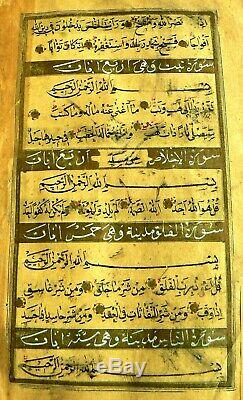 اذا جاء نصر الله والفتح ورايت الناس يدخلون في دين الله
افواجا فسبح بحمد ربك واستغفره انه كان توابا
سورة تبت وهي اربع ايات
بسم الله الرحمن الرحيم
تبت يدا ابي لهب وتب ما اغنى عنه ماله وما كسب
سيصلى نارا ذات لهب وامراته حمالة الحطب في جيدها حبل
سورة الاخلاص اربع ايات
بسم الله الرحمن الرحيم
قل هو الله احد الله الصمد لم يلد ولم يولد ولم يكن له كفوا احد
سورة الفلق مدينة وهي خمس ايات
بسم الله الرحمن الرحيم
قل اعوذ برب الفلق من شر ما خلق ومن شر غاسق
اذا وقب ومن شر النفاثات في العقد ومن شر حاسد اذا حسد
سورة الناس مدينة وهي ست ايات
بسم الله الرحمن الرحيم